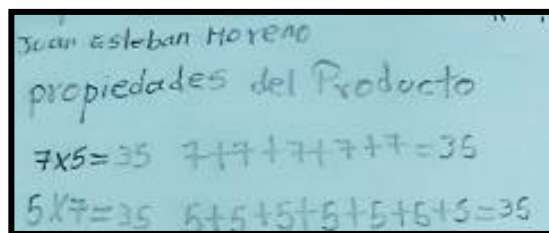 Juan Esteban Moreno
propiedades del Producto
7x5=35 7+7+7+7+7=35
5x7=35 5+5+5+5+5+5+5=35